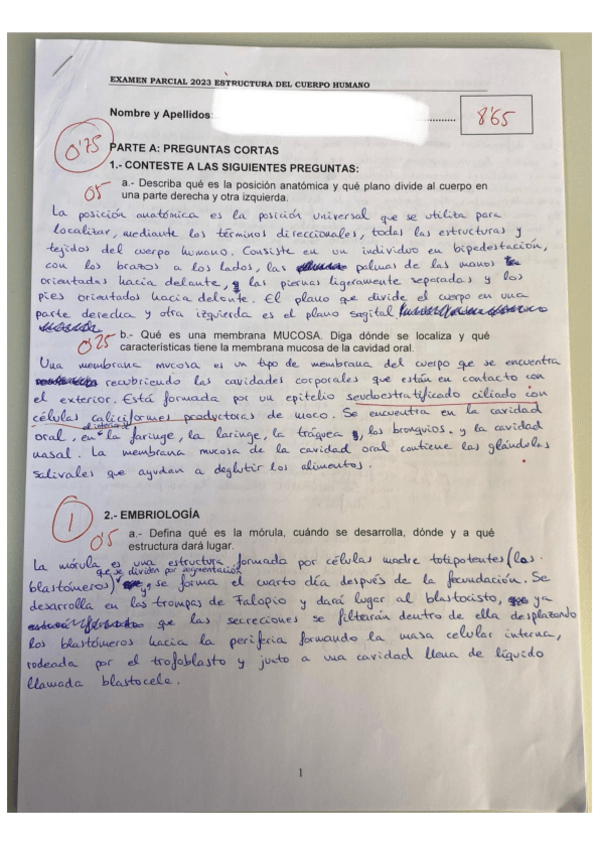 EXAMEN PARCIAL 2023 ESTRUCTURA DEL CUERPO HUMANO
Nombre y Apellidos:
8'65
0'75
PARTE A: PREGUNTAS CORTAS
1.- CONTESTE A LAS SIGUIENTES PREGUNTAS:
05
a.- Describa qué es la posición anatómica y qué plano divide al cuerpo en
una parte derecha y otra izquierda.
La posición anatómica es la posición universal que se utiliza para
localizar, mediante los términos direccionales, todas las estructuras y
tejidos del cuerpo humano. Consiste en un individuo en bipedestación,
con los brazos a los lados, las palmas de las manos
orientadas hacia delante, las piernas ligeramente separadas y los
pies orientados hacia delante. El plano que divide el cuerpo en una
parte derecha y otra izquierda es el plano sagital
0'25
b.- Qué es una membrana MUCOSA. Diga dónde se localiza y qué
características tiene la membrana mucosa de la cavidad oral.
Una membrana mucosa es un tipo de membrana del cuerpo que se encuentra
recubriendo las cavidades corporales que están en contacto con
el exterior. Está formada por un epitelio seudoestratificado ciliado con
células caliciformes productoras de moco. Se encuentra en la cavidad
oral, en el interior de la faringe, la laringe, la tráquea, los bronquios. y la cavidad
nasal. La membrana mucosa de la cavidad oral contiene las glándulas
salivales que ayudan a deglutir los alimentos.
1
2.- EMBRIOLOGÍA
0'5
a.- Defina qué es la mórula, cuándo se desarrolla, dónde y a qué
estructura dará lugar.
La mórula es una estructura formada por células madre totipotentes (los
blastómeros) que se dividen por segmentación y se forma el cuarto día después de la fecundación. Se
desarrolla en las trompas de Falopio y dará lugar al blastocisto, ya
que las secreciones se filtrarán dentro de ella desplazando
los blastómeros hacia la periferia formando la masa celular interna,
rodeada por el trofoblasto y junto a una cavidad llena de líquido
llamada blastocele.
1